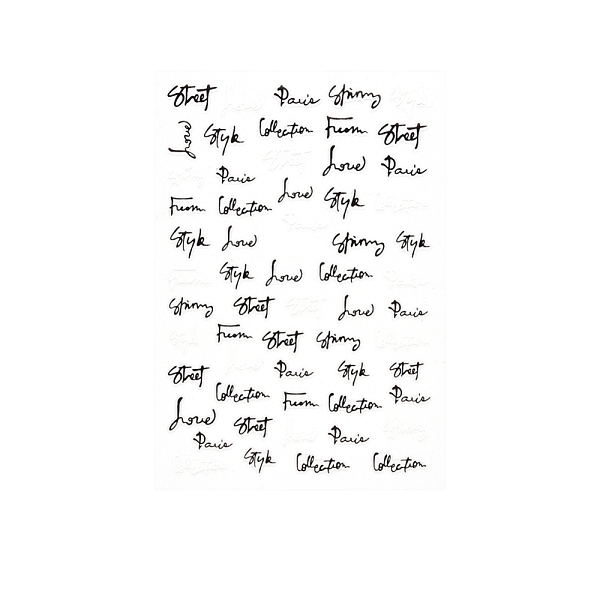 Street Paris Spinny
Love Style Collection From Street
Love Paris
Paris
Love Style
From Collection
Style Love Spinny Style
Style Love Collection
Spinny Street Love Paris
From Street Spinny
Street Paris Style Street
Collection From Collection Paris
Love Street
Paris Paris
Style Collection Collection